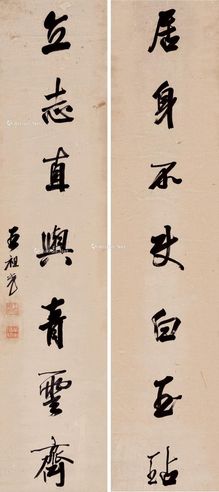 居身不使白玉玷
立志直與青雲齊
王祖光